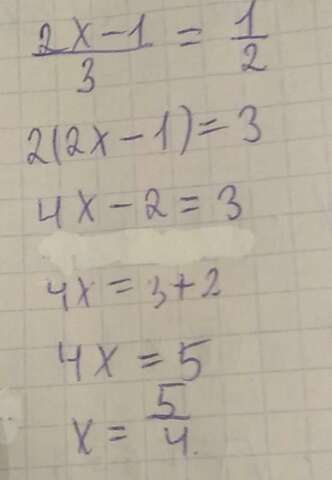 2x-1/3 = 1/2
2(2x-1)=3
4x-2=3
4x=3+2
4x=5
x=5/4